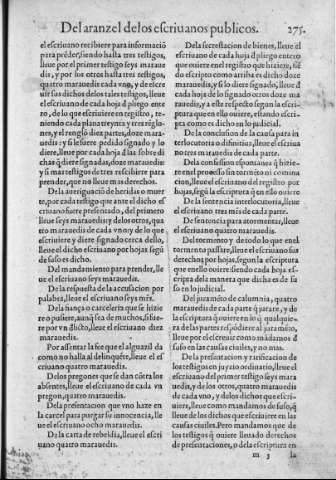 Del aranzel de los escriuanos publicos. 275.
el escriuano recibiere para informació
para préder, siendo hasta tres testigos,
lleue por el primer testigo seys maraue
dis, y por los otros hasta tres testigos,
quatro marauedis cada vno, y de escre
uir sus dichos delos tales testigos, lleue
el escriuano de cada hoja d pliego ente
ro, de lo que escriuiere en registro, te
niendo cada plana treynta y tres réglo
nes, y el renglō diez partes, doze mara-
uedis: y si lesuere pedido signado y lo
diere, lleue por cada hoja d las sobre di
chas q̄ diere signadas, doze marauedis:
y si mas testigos de tres rescibire para
prender, que no lleue mas derechos.
De la aueriguació de heridas o muer
te, por cada testigo que ante el dicho es
criuano fuere presentado, del primero
lleue seys marauedis y delos otros, qua
tro marauedis de cada vno y de lo que
escriuiere y diere signado cerca dello,
lleue el dicho escriuano por hojas segū
de suso es dicho.
Del mandamiento para prender, lle
ue el escriuano seys marauedis.
De la respuesta de la acusacion por
palabra, lleue el escriuano seys mrs.
De la fiança o carceleria que se hizie
re o pusiere, aunq̄ sea de muchos, si fue-
re por vn dlicto, lleue el escriuano diez
marauedis.
Por assentar la fee que el alguazil da
como no halla al delinquēte, lleue el es
criuano quatro marauedis.
De los pregones que se dan cōtra los
absentes, lleue el escriuano de cada vn
pregon, quatro marauedis.
De la presentacion que vno haze en
la carcel para purgar su innocencia, lle
ue el escriuano ocho marauedis.
De la carta de rebeldia, lleue el escri
uano quatro marauedis.
De la secrestacion de bienes, lleue el
escriuano de cada hoja d pliego entero
que ouiere en el registro que hiziere, siē
do escripto como arriba es dicho doze
marauedis, y si lo diere signado, lleue d
cada hoja de lo signado otros doze ma
rauedis, y a este respecto segun la escri-
ptura que en ello ouiere, estando escri-
pta como es dicho en lo judicial.
De la conclusion de la causa para in
terlocutoria o difinitiua, lleue el escriua
no tres marauedis de cada parte.
De la confession espontanea q̄ hizie-
re en el processo sin tormēto ni comina
cion, lleue el escriuano del registro por
hojas, segū la escriptura q̄ en ello ouiere
De la sentencia interlocutoria, lleue
el escriuano tres mrs de cada parte.
De sentencia para atormentar, lleue
el escriuano quatro marauedis.
Del tormento y de todo lo que en el
tormento passare, lleue el escriuano sus
derechos por hojas, segun la escriptura
que en ello ouiere siendo cada hoja es-
cripta dela manera que dicha es de su
so en lo judicial.
Del juramēto de calumnia, quatro
marauedis de cada parte q̄ jurare, y de
la escriptura q̄ ouiere en lo q̄ qualquie-
ra de las partes respōdiere al juramēto,
lleue por el escreuir como mādamos d
suso en las causas ciuiles, y no mas.
De la presentacion y ratificacion de
los testigos en juyzio ordinario, lleue el
escriuano del primer testigo seys mara
uedis, y de los otros, quatro marauedis
de cada vno, y de los dichos que escri-
uiere, lleue como mandamos de suso, q̄
lleue de los dichos que escriuiere en las
causas ciuiles. Pero mandamos que de
los testigos q̄ ouiere lleuado derechos
de presentaciones, o dela escriptura en
m 3 la